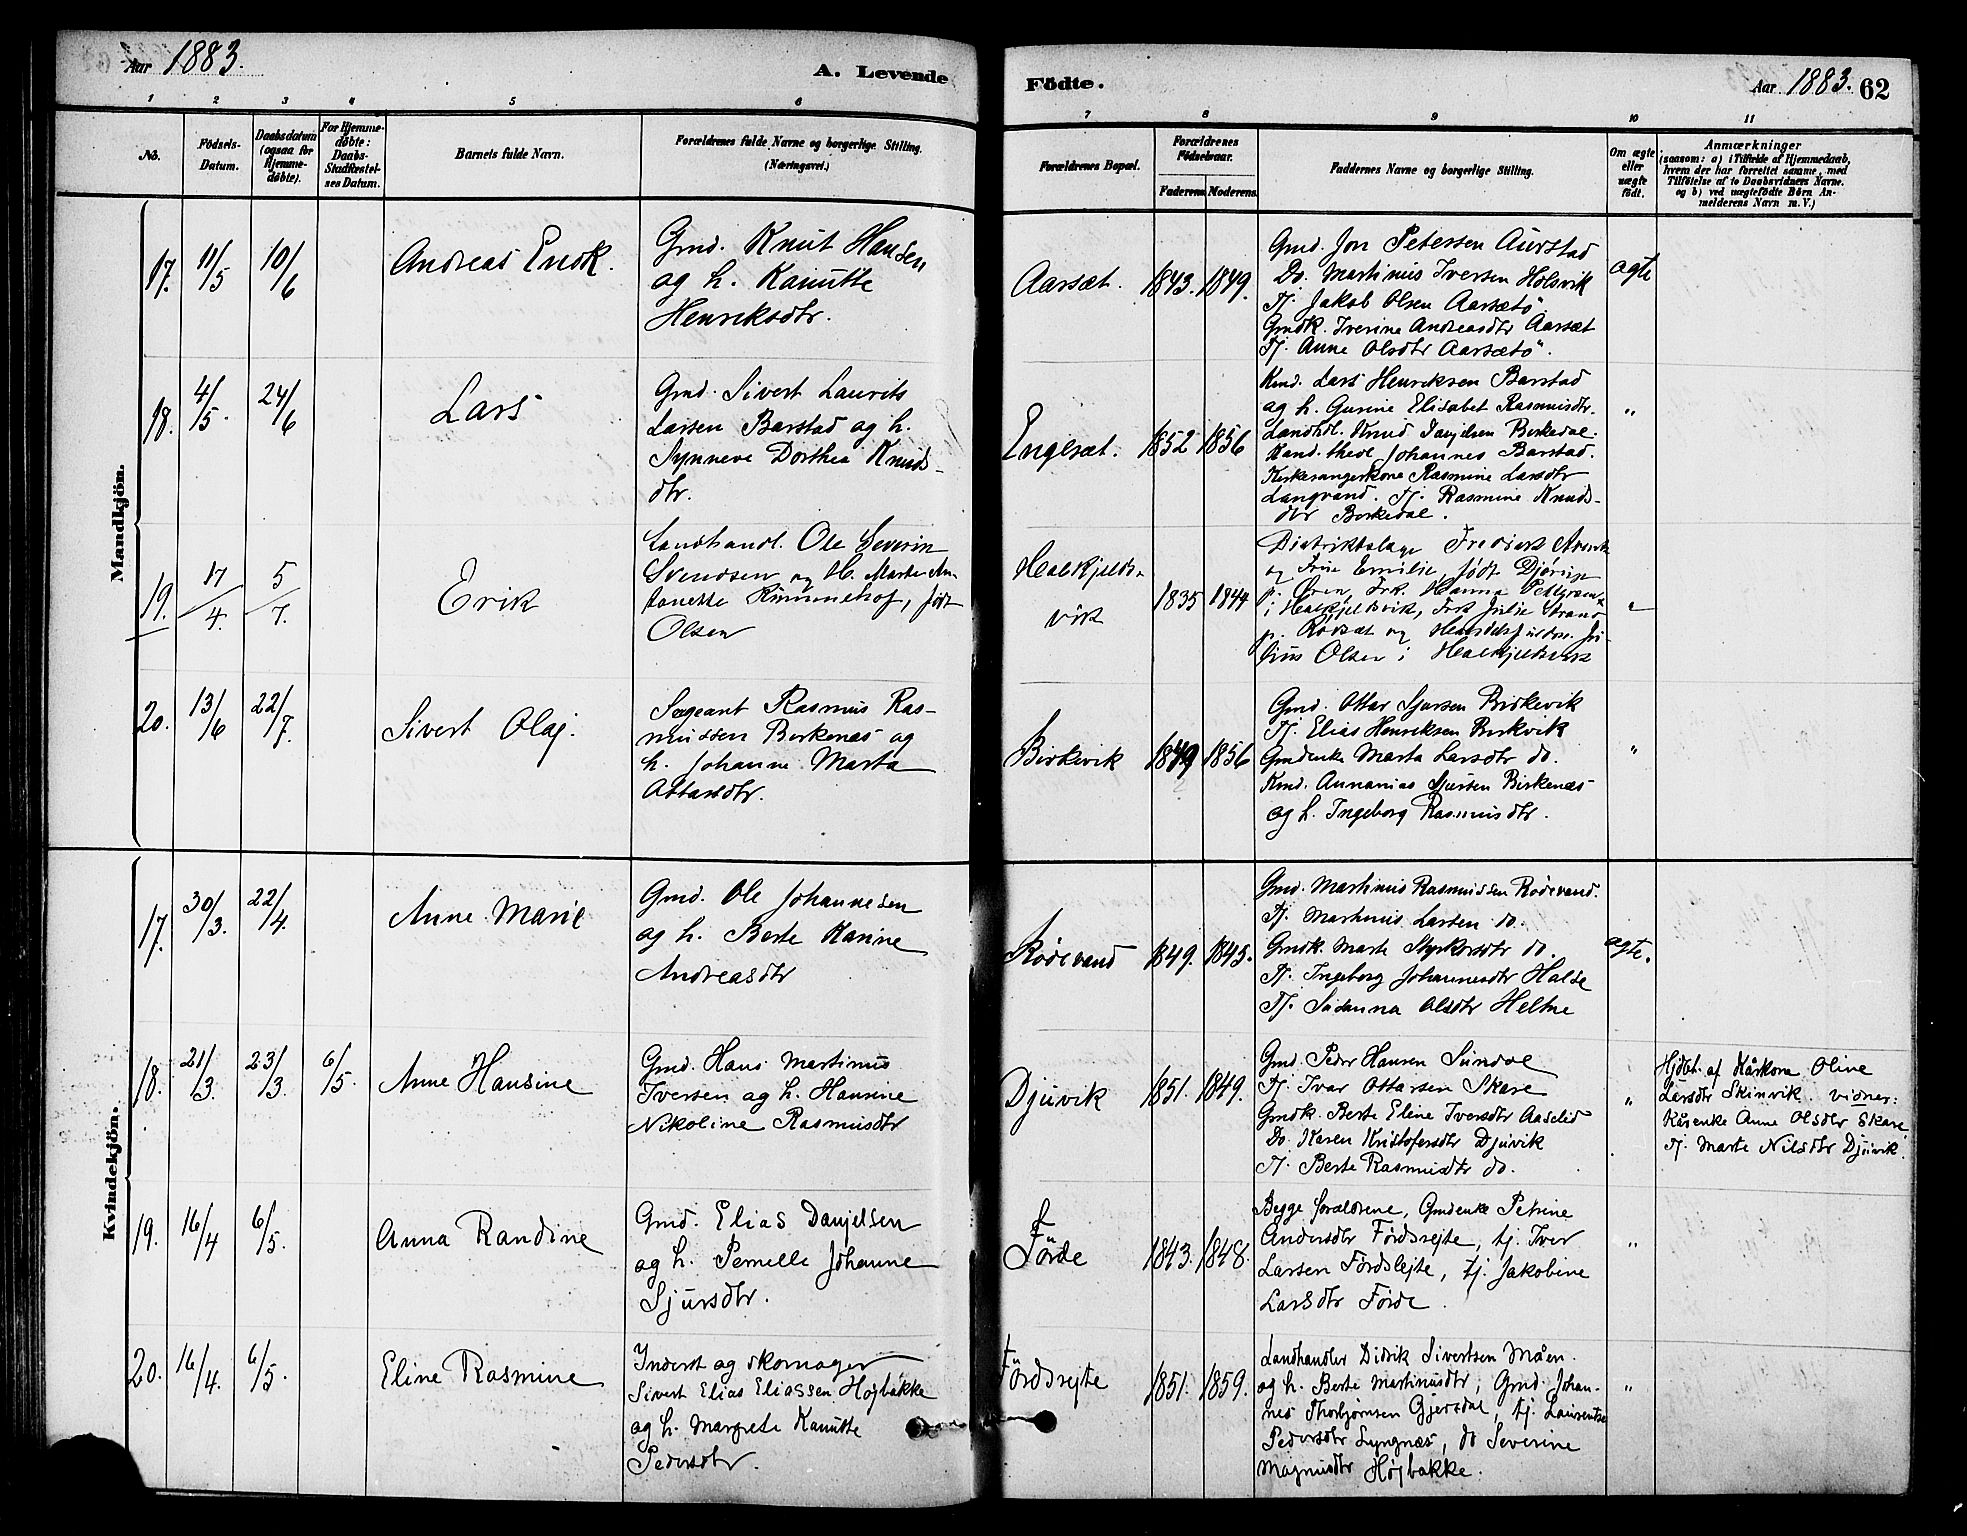 Aar 1883.
A. Levende
Födte.
Aar 1883. 62
1 2 3 4 5 6
7 8 9 10 11
No.
Födsels-
Datum.
Daabsdatum
(ogsaa for
Hjemme-
døbte).
For Hjemme-
døbte:
Daabs-
Stadfæstel-
ses Datum.
Barnets fulde Navn.
Forældrenes fulde Navne og borgerlige Stilling.
(Næringsvei.)
Forældrenes Bopæl.
Forældrenes
Födselsaar.
Faderens. Moderens.
Faddernes Navne og borgerlige Stilling.
Om ægte
eller
uægte
født.
Anmærkninger
(saasom: a) i Tilfælde af Hjemmedaab,
hvem der har forrettet samme, med
Tilføielse af to Daabsvidners Navne.
og b) ved uægtefødte Børn An-
melderens Navn m. V.)
Mandkjön.
17. 11/5 10/6
Andreas Enok.
Gmd. Knut Hansen
og h. Kanutte
Henriksdtr.
Aarsæt. 1843. 1849.
Gmd. Jon Petersen Aurstad
Do. Martinus Iversen Holsvik
Tj. Jakob Olsen Aarsætö
Gmdk. Iverine Andreasdtr Aarsæt
Tj. Anne Olsdtr Aarsætö.
ægte
18. 4/5. 24/6
Lars
Gmd. Sivert Laurits
Larsen Barstad og h.
Synneve Dorthea Knuds-
dtr.
Engesæt. 1852 1856
Kmd. Lars Henriksen Barstad
og h. Gurine Elisabet Rasmusdtr.
Landhdl. Knud Danjelsen Birkedal.
Kand. theol Johannes Barstad.
Kirkesangerkone Rasmine Larsdtr
Langvand. Tj. Rasmine Knuds-
dtr Birkedal.
"
19. 17/4. 5/7.
Erik
Landhandl. Ole Severin
Svendsen og H. Marte An-
tonette Rimmehof, født
Olsen
Hovekjelds-
vik
1835 1844
Distriktslæge Fredrik
og Frue Emilie, født
p. Øren, Frk. Hanna
i Frk Julie Strand
p. Rödsæt og
lius Olsen i
"
20. 13/6 22/7.
Sivert Olaj.
Sergeant Rasmus Ras-
mussen Birkenæs og
h. Johanne Marta
Ottarsdtr.
Birkevik 1849 1856
Gmd. Ottar Sjursen Birkevik
Tj. Elias Henriksen Birkevik
Gmdenke Marta Larsdtr do.
Kmd. Annanias Sjursen Birkenæs
og h. Ingeborg Rasmusdtr.
"
Kvindekjön.
17. 30/3. 22/4.
Anne Marie
Gmd. Ole Johannesen
og h. Berte Karine
Andreasdtr
Rödevand 1849. 1845.
Gmd. Martinus Rasmussen Rödevand.
Tj. Martinus Larsen do.
Gmdk. Marte Styrkorsdtr do.
Tj. Ingeborg Johannesdtr Halse
Tj. Susanna Olsdtr Heltne
ægte.
18. 21/3. 23/3 6/5.
Anne Hansine
Gmd. Hans Martinus
Iversen og h. Hansine
Nikoline Rasmusdtr
Djuvik 1851. 1849.
Gmd. Peder Hansen Sundal
Tj. Ivar Ottarsen Skare
Gmdk. Berte Eline Iversdtr Aaselid
Do. Karen Kristofersdtr Djuvik
Tj. Berte Rasmusdtr do.
"
Hjdbt. af Kårkona Oline
Larsdtr Skinvik. vidner:
Kårenke Anne Olsdtr Skare
Tj. Marte Nilsdtr Djuvik.
19. 16/4 6/5.
Anna Randine
Gmd. Elias Danjelsen
og h. Pernelle Johanne
Sjursdtr.
Förde 1843. 1848.
Begge forældrene, Gmdenke Petrine
Andersdtr Fördsrejte, tj. Iver
Larsen Fördslejte, tj. Jakobine
Larsdtr Förde.
"
20. 16/4. 6/5.
Eline Rasmine
Inderst og skomager
Sivert Elias Eliassen Højbakke
og h. Margrete Kanutte
Pedersdtr.
Fördsrejte 1851. 1859.
Landhandler Didrik Sivertsen Måen.
og h. Berte Martinusdtr, Gmd. Johan-
nes Thorbjørnsen Gjersdal, tj. Laurentse
Pedersdtr Lyngnæs, do Severine
Magnusdtr Højbakke.
"